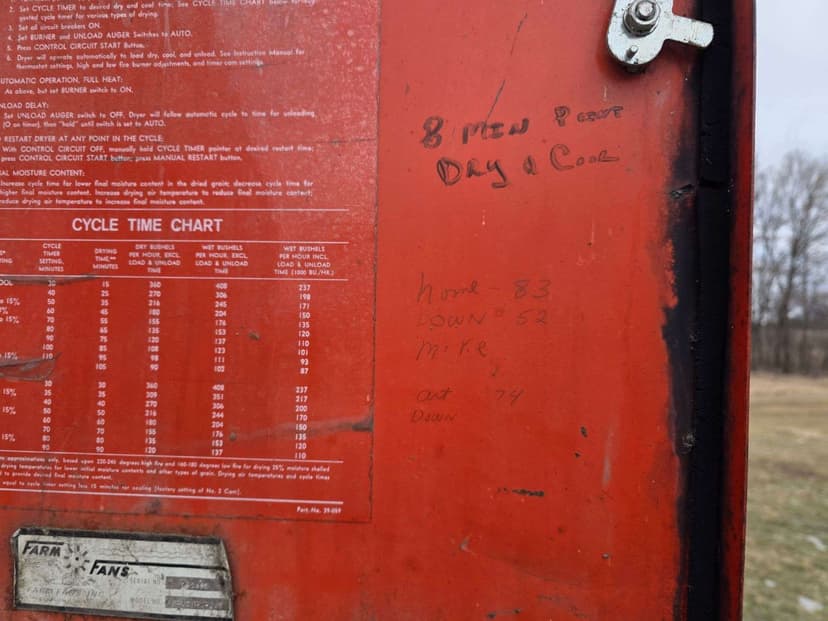 2. Set CYCLE TIMER to desired dry and cool time. See CYCLE TIME CHART below for
gested cycle timer for various types of drying.
3. Set all circuit breakers ON.
4. Set BURNER and UNLOAD AUGER Switches to AUTO.
5. Press CONTROL CIRCUIT START Button.
6. Dryer will operate automatically to load dry, cool, and unload. See Instruction Manual for
thermostat settings, high and low fire burner adjustments, and timer cam settings.
UTOMATIC OPERATION, FULL HEAT:
As above, but set BURNER switch to ON.
NLOAD DELAY:
Set UNLOAD AUGER switch to OFF. Dryer will follow automatic cycle to time for unloading
(O on timer), then "hold" until switch is set to AUTO.
RESTART DRYER AT ANY POINT IN THE CYCLE:
With CONTROL CIRCUIT OFF, manually hold CYCLE TIMER pointer at desired restart time;
press CONTROL CIRCUIT START button; press MANUAL RESTART button.
AL MOISTURE CONTENT:
Increase cycle time for lower final moisture content in the dried grain; decrease cycle time for
higher final moisture content. Increase drying air temperature to reduce final moisture content;
reduce drying air temperature to increase final moisture content.
CYCLE TIME CHART
CYCLE TIMER SETTING, MINUTES
DRYING TIME,** MINUTES
DRY BUSHELS PER HOUR, EXCL. LOAD & UNLOAD TIME
WET BUSHELS PER HOUR, EXCL. LOAD & UNLOAD TIME
WET BUSHELS PER HOUR INCL. LOAD & UNLOAD TIME (1000 BU./HR.)
OOL 30 15 360 408 237
40 25 270 306 198
15% 50 35 216 245 171
60 45 180 204 150
15% 70 55 155 176 135
80 65 135 153 120
90 75 120 137 110
100 85 108 123 101
15% 110 95 98 111 93
105 90 102 87
30 30 360 408 237
15% 35 35 309 351 217
40 40 270 306 200
15% 50 50 216 244 170
60 60 180 204 150
70 70 155 176 135
15% 80 80 135 153 120
90 90 120 137 110
approximations only, based upon 220-240 degrees high fire and 160-180 degrees low fire for drying 25% moisture shelled
drying temperatures for lower initial moisture contents and other types of grain. Drying air temperatures and cycle times
to provide desired final moisture content.
equal to cycle timer setting less 15 minutes for cooling (factory setting of No. 2 Cam).
Part No. 39-059
FARM FANS
FARM FANS INC.
SERIAL NO.
MODEL NO.
8 MIN
Dry & Cool
home - 83
DOWN 52
Mike
art 74
Down